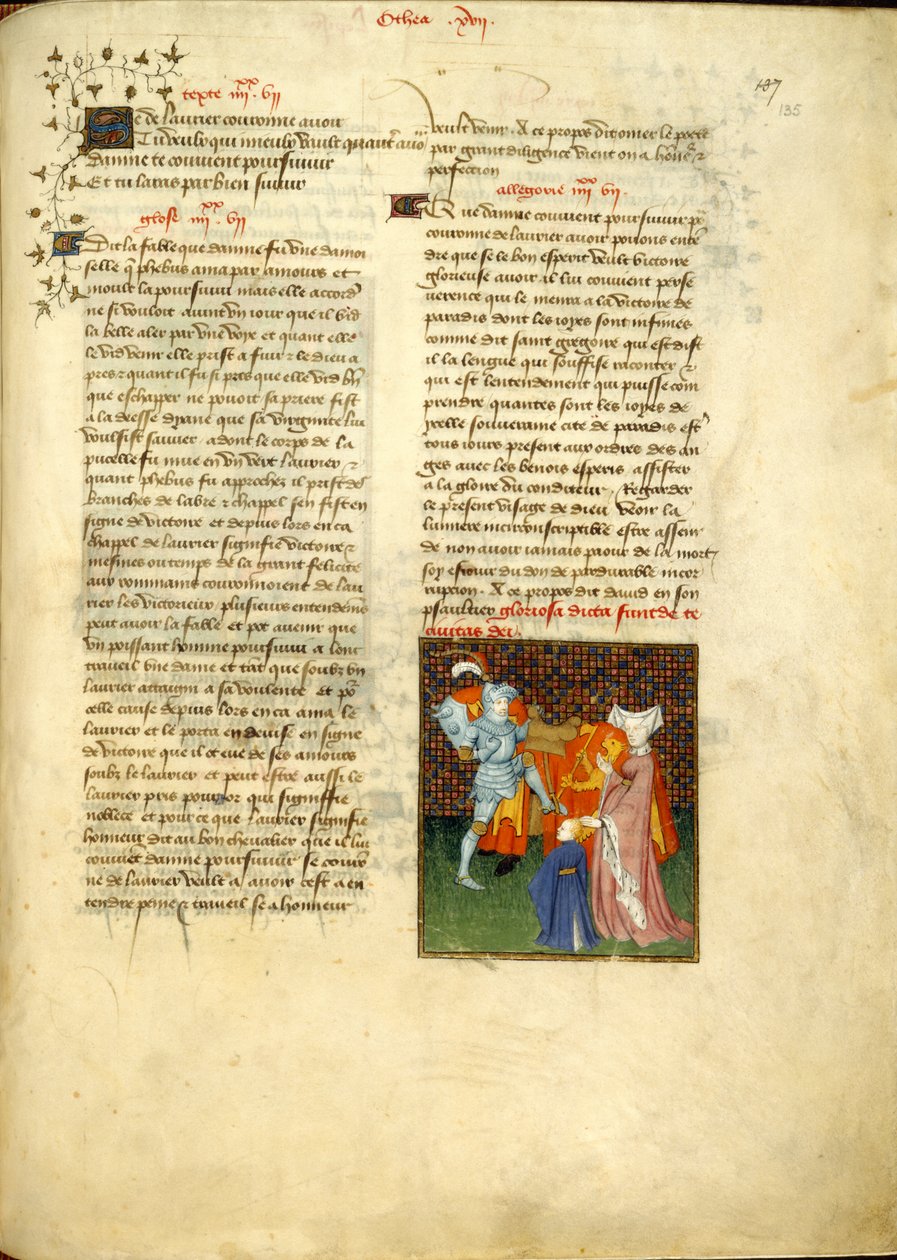 Othea .xvii.
137
135
texte iiii xx. vii
Se de laurier couronne avoir
Tu veulx qui mieulx vault quautre avoir
Damne te convient poursuivir
Et tu lauras par bien suivir
glose iiii xx. vii
Dit la fable que damne fu une damoi
selle que phebus ama par amours et
moult la poursuivi mais elle accord
ne si vouloit avint un iour que il vid
la belle aler par une voye et quant elle
le vid venir elle prist a fuir z le dieu a
pres z quant il fu si pres que elle vid bn
que eschapper ne povoit sa priere fist
a la deesse dyane que sa virginite lui
voulsist sauver adont le corps de la
pucelle fu mue en un vert laurier z
quant phebus fu approchez il prist des
branches de labre z chappel sen fist en
signe de victoire et depuis lors en ca
chappel de laurier signifie victoire z
mesmes ou temps de la grant felicite
aux rommains couronnoient de lau
rier les victorieux plusieurs entendems
peut avoir la fable et pot avenir que
un poissant homme poursuivi a lonc
traveil une dame et tat que soubz un
laurier attaigni a sa voulente et por
celle cause depuis lors en ca ama le
laurier et le porta en devise en signe
de victoire que il ot eue de ses amours
soubz le laurier et peut estre aussi le
laurier pris pour or qui signiffie
noblece et pour ce que laurier signifie
honneur dit au bon chevalier que il lui
convient damne poursuivir se couron
ne de laurier veult a avoir cest a en
tendre peine z traveil se a honneur
veult venir. A ce propos dit omer le poete
par grant diligence vient on a honer z
perfeccion
allegorie iiii xx vii.
Que damne convient poursuivir pr
couronne de laurier avoir povons enten
dre que se le bon esperit veult victoire
glorieuse avoir il lui convient perse
verence qui le menra a la victoire de
paradis dont les ioyes sont infinies
comme dit saint gregoire qui est dist
il la lengue qui souffise raconter z
qui est lentendement qui puisse com
prendre quantes sont les ioyes de
ycelle souveraine cite de paradis estre
tous iours present aux ordres des an
ges avec les benois esperis assister
a la gloire du conditeur. Regarder
le present visage de dieu veoir la
lumiere incirconscriptible estre asseur
de non avoir iamais paour de la mort
soy esiouir du don de pardurable incor
rupcion. A ce propos dit david en son
psaultier gloriosa dicta sunt de te
civitas dei